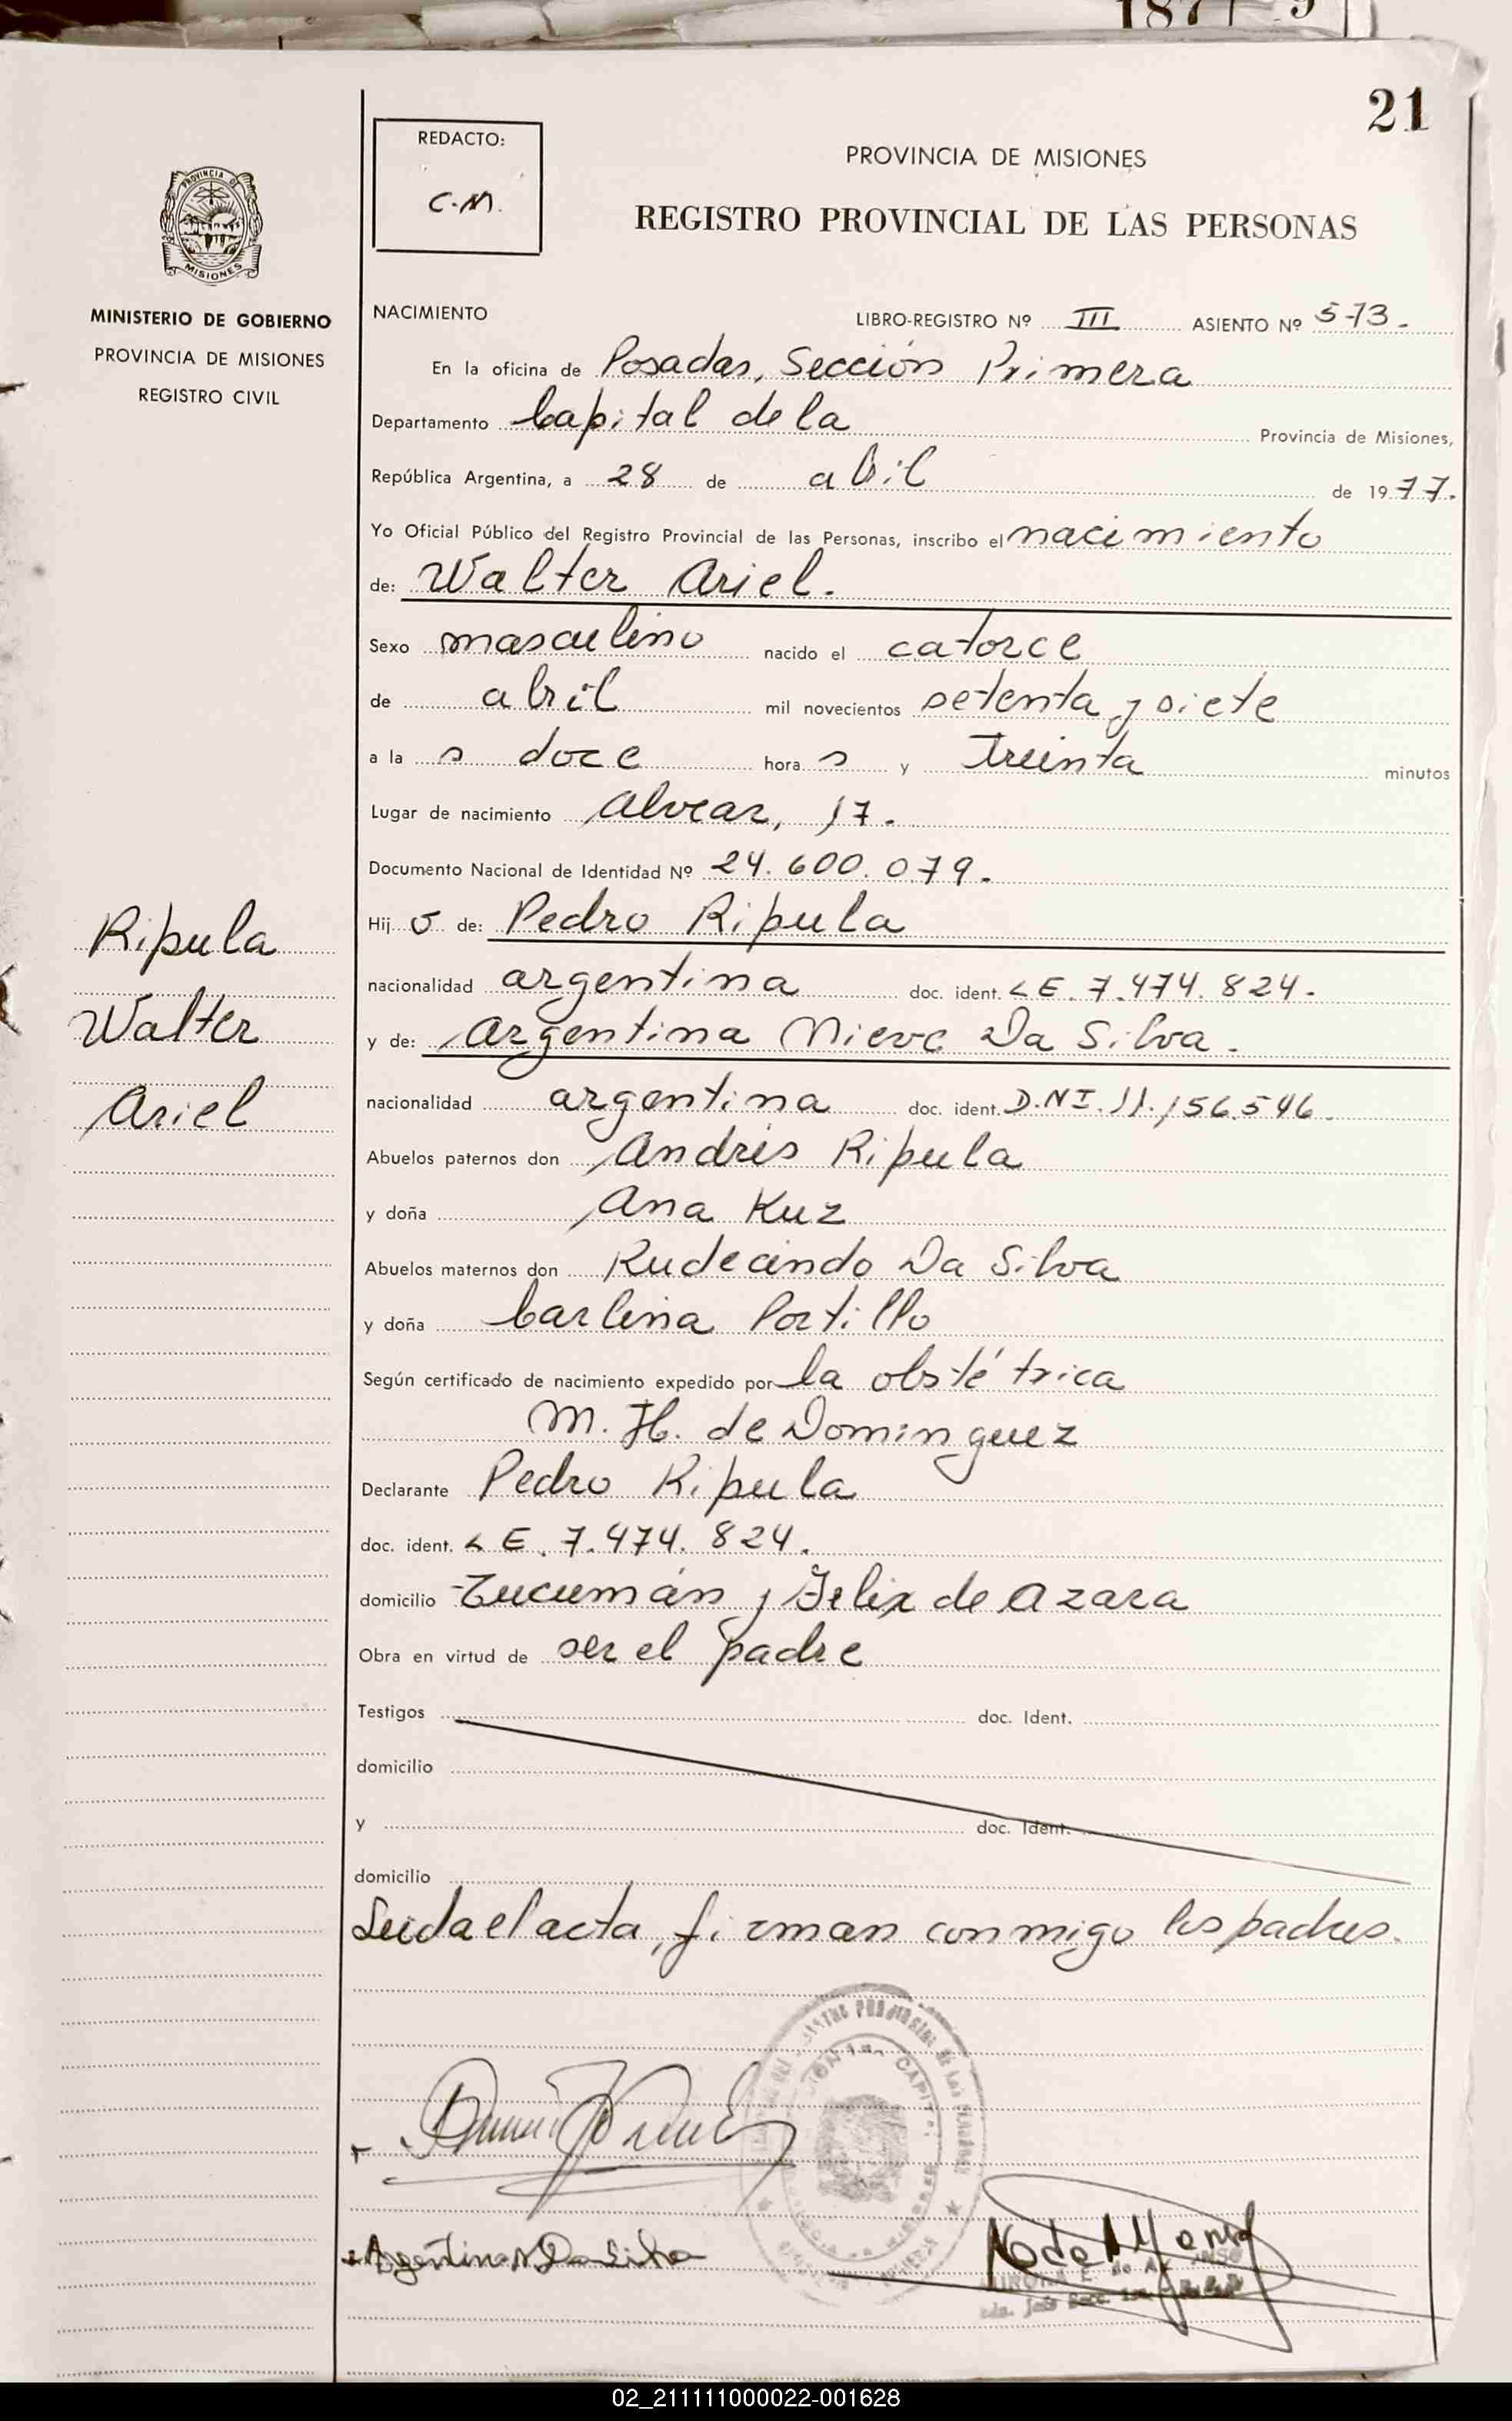 21
REDACTO:
C.M.
PROVINCIA DE MISIONES
REGISTRO PROVINCIAL DE LAS PERSONAS
PROVINCIA DE
MISIONES
MINISTERIO DE GOBIERNO
PROVINCIA DE MISIONES
REGISTRO CIVIL
NACIMIENTO LIBRO-REGISTRO Nº III ASIENTO Nº 573.
En la oficina de Posadas, Sección Primera
Departamento Capital de la Provincia de Misiones,
República Argentina, a 28 de abril de 1977.
Yo Oficial Público del Registro Provincial de las Personas, inscribo el nacimiento
de: Walter Ariel.
Sexo masculino nacido el catorce
de abril mil novecientos setenta y siete
a la s doce hora s y treinta minutos
Lugar de nacimiento Alvear, 17.
Documento Nacional de Identidad Nº 24.600.079.
Hij o de: Pedro Ripula
nacionalidad argentina doc. ident. LE. 7.474.824.
y de: Argentina Nieve Da Silva.
nacionalidad argentina doc. ident. D.N.I. 11.156.546.
Abuelos paternos don Andrés Ripula
y doña Ana Kuz
Abuelos maternos don Rudecindo Da Silva
y doña Carlina Portillo
Según certificado de nacimiento expedido por la obstétrica
M. H. de Dominguez
Declarante Pedro Ripula
doc. ident. LE. 7.474.824.
domicilio Tucumán y Felix de Azara
Obra en virtud de ser el padre
Testigos doc. Ident.
domicilio
y doc. Ident.
domicilio
Leida el acta, firman conmigo los padres.
Ripula
Walter
Ariel
Argentina N Da Silva
02_211111000022-001628